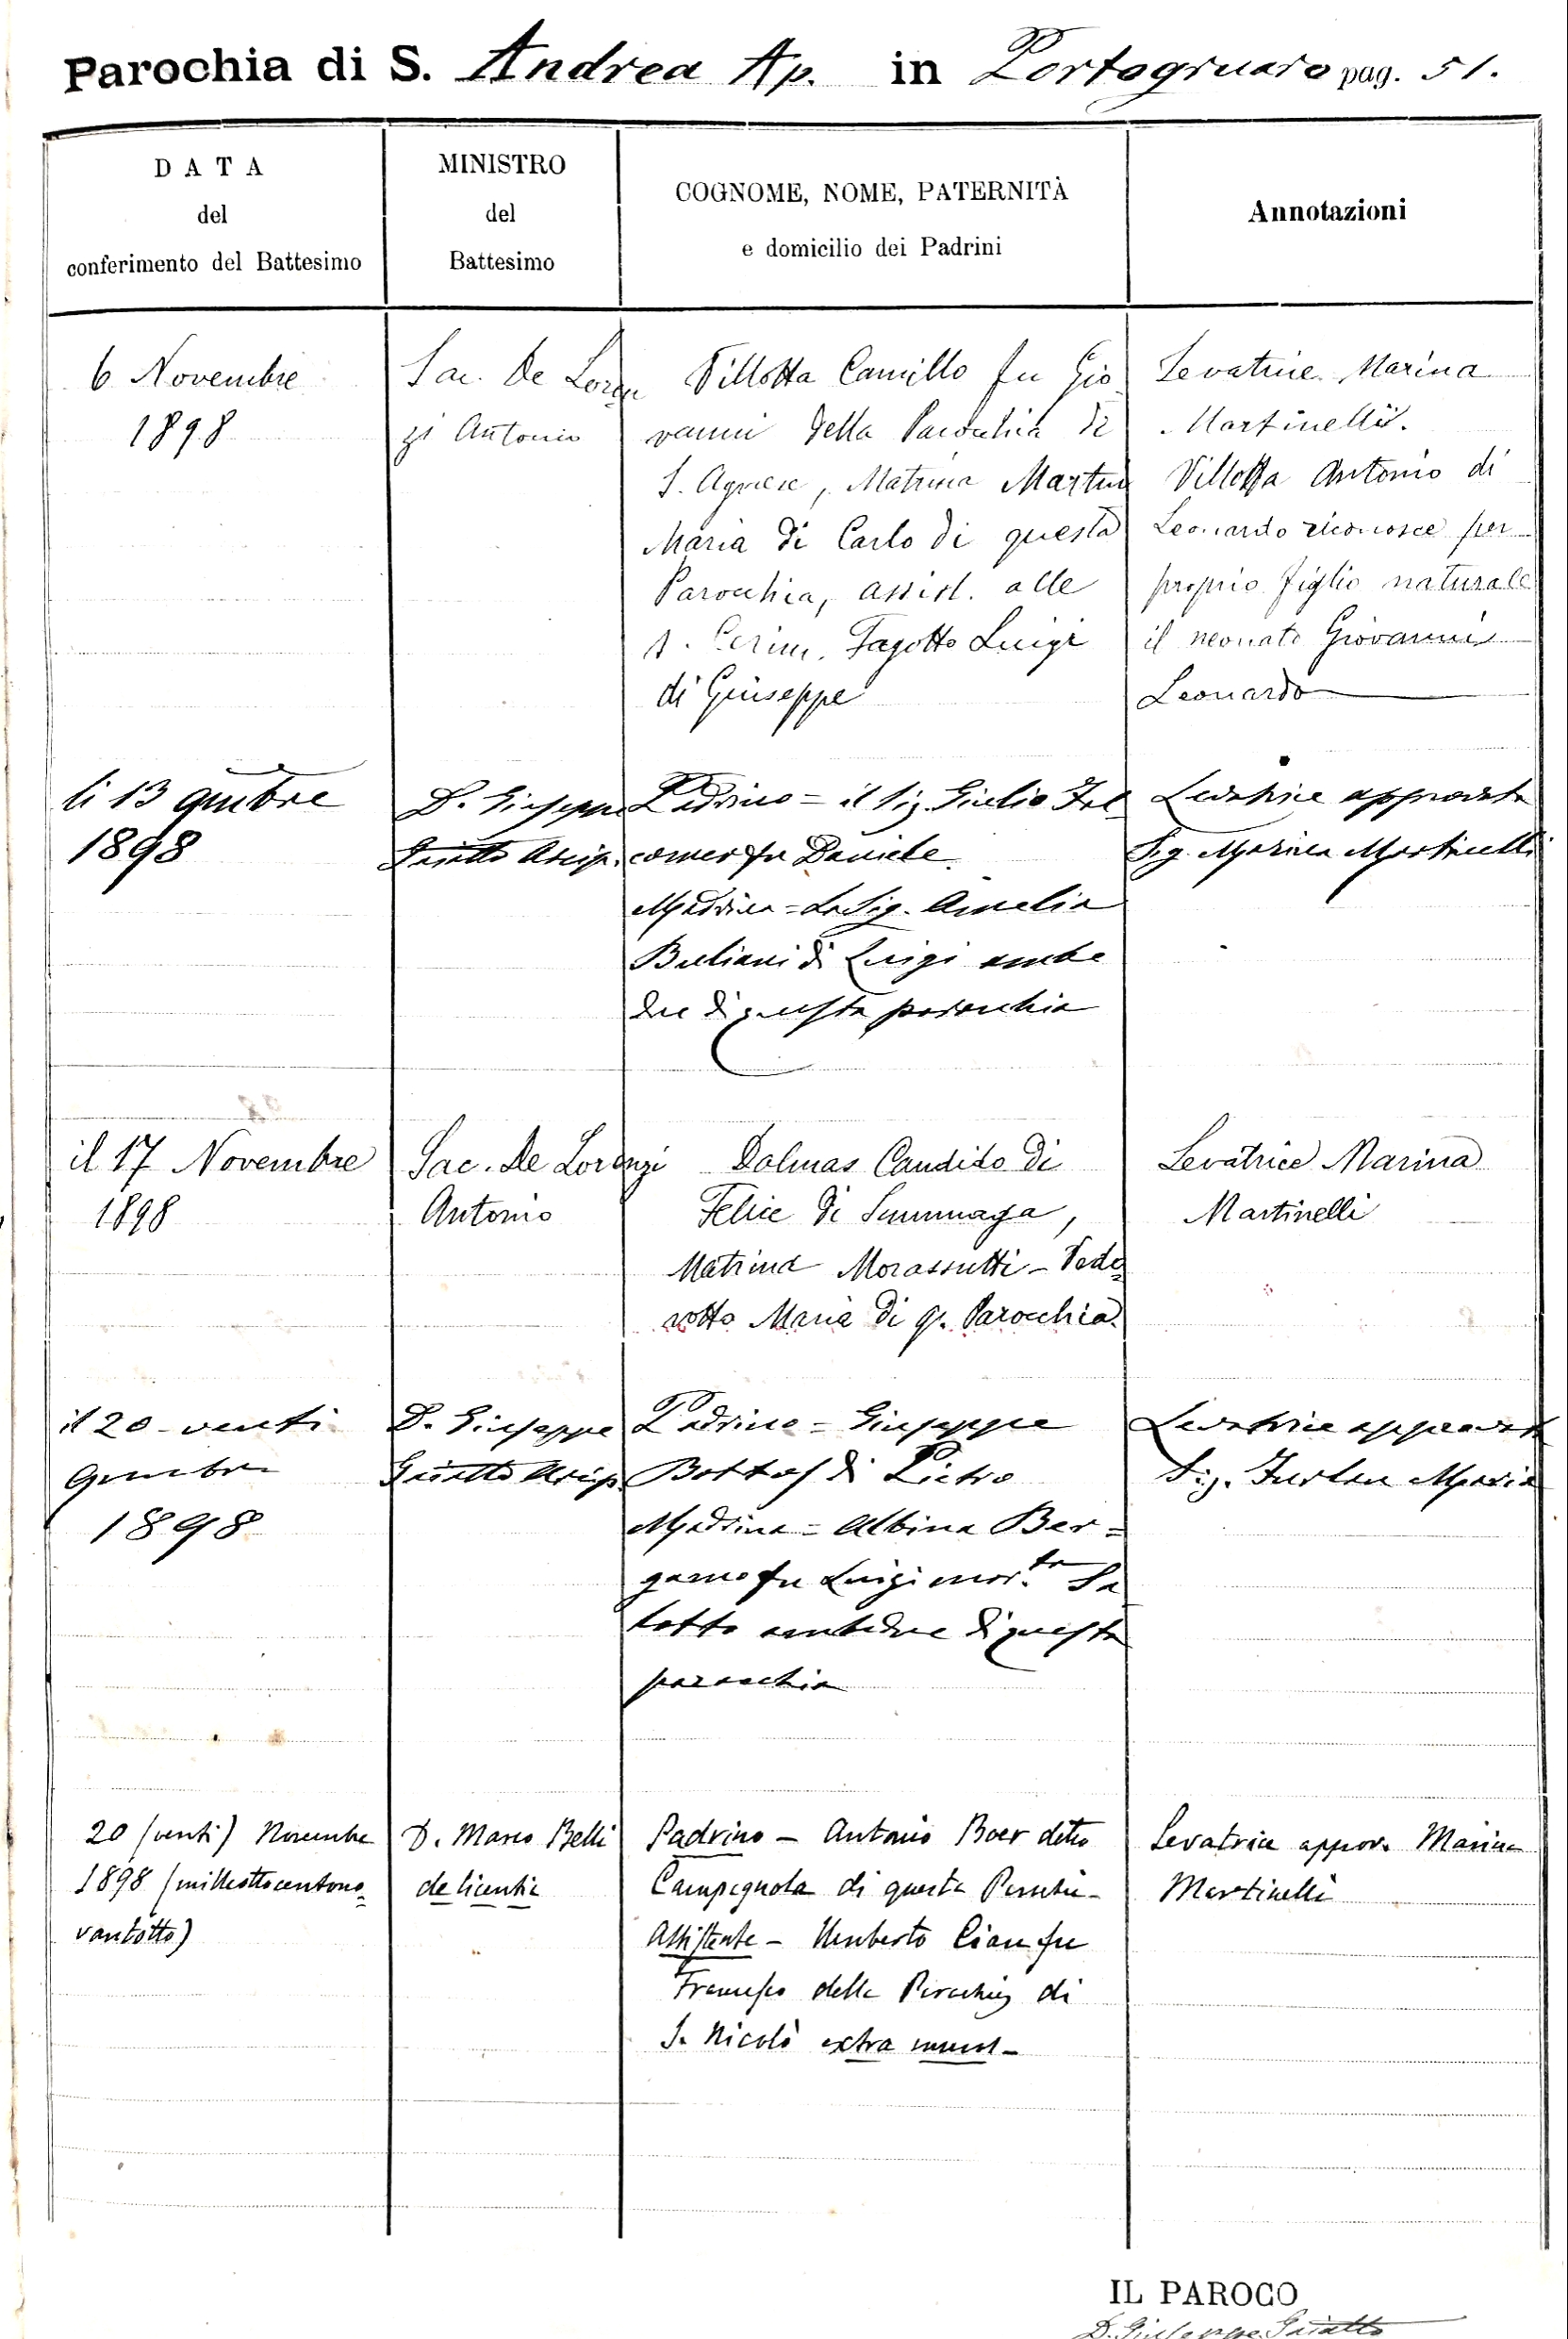 Parochia di S. Andrea Ap. in Portogruaro pag. 51.
DATA
del
conferimento del Battesimo
MINISTRO
del
Battesimo
COGNOME, NOME, PATERNITÀ
e domicilio dei Padrini
Annotazioni
6 Novembre
1898
Sac. De Loren
zi Antonio
Villotta Camillo fu Gio
vanni della Parochia di
S. Agnese, Matrina Martin
Maria di Carlo di questa
Parochia, assist. alle
s. Cerim. Fagotto Luigi
di Giuseppe
Levatrice Marina
Martinelli.
Villotta Antonio di
Leonardo riconosce per
proprio figlio naturale
il neonato Giovanni
Leonardo
li 13 9mbre
1898
D. Giuseppe
Giatto Arcip.
Padrino = il Sig. Giulio Fal
comer fu Daniele
Madrina = La Sig. Amelia
di Luigi ambe
due di questa parochia
Levatrice approvata
Sig. Marina Martinelli
il 17 Novembre
1898
Sac. De Lorenzi
Antonio
Dalmas Candido di
Felice di Summaga,
Matrina Morassutti - Tode
rotto Maria di q. Parocchia.
Levatrice Marina
Martinelli
il 20 - venti
9mbre
1898
D. Giuseppe
Giatto Arcip.
Padrino = Giuseppe
Bottos di Pietro
Madrina = Albina Ber=
gamo fu Luigi mar.ta
totto ambedue di questa
parochia
Levatrice approvata
Sig. Furlan Maria
20 (venti) Novembre
1898 (milleottocentono=
vantotto)
D. Marco Belli
de licentia
Padrino - Antonio Boer detto
Campagnola di questa
Assistente - Umberto Cian fu
Francesco della Parochia di
S. Nicolò extra muros -
Levatrice approv. Marina
Martinelli
IL PAROCO
D. Giuseppe Giatto